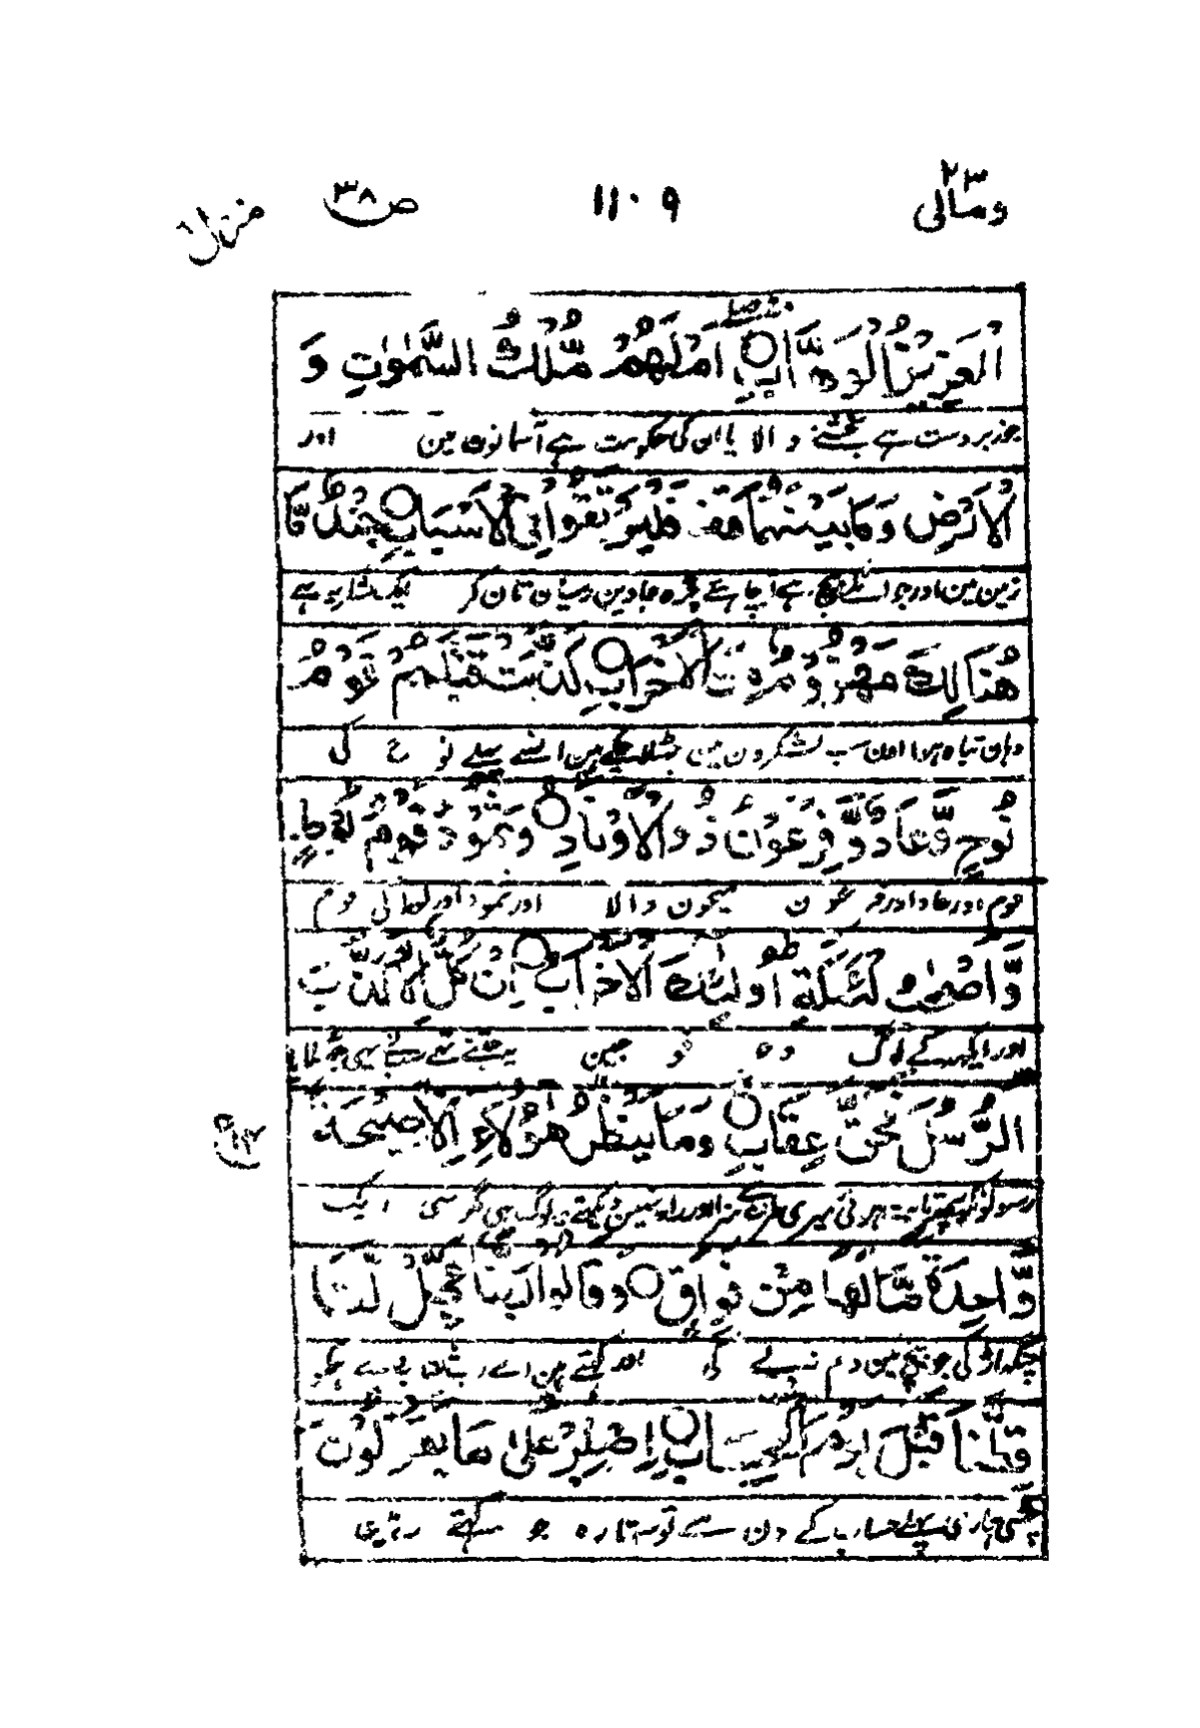 ومالی ۲۳
۱۱۰۹
ص ۳۸
منزل ۶
الْعَزِيْزِ الْوَهَّابِ ○ اَمْ لَهُمْ مُّلْكُ السَّمٰوٰتِ وَ
جو زبردست ہے بخشنے والا یا ان کی حکومت ہے آسمانوں مین اور
الْاَرْضِ وَمَا بَيْنَهُمَا فَلْيَرْتَقُوْا فِى الْاَسْبَابِ ○ جُنْدٌ مَّا
زمین مین اور جو انکے بیچ ہے چاہئے رسیان تان کر ایک لشکر یہ ہے
هُنَالِكَ مَهْزُوْمٌ مِّنَ الْاَحْزَابِ ○ كَذَّبَتْ قَبْلَهُمْ قَوْمُ
وہان تباہ ہوا ان سب لشکرون مین جھٹلا چکے ہین انسے پہلے نوح کی
نُوْحٍ وَّعَادٌ وَّفِرْعَوْنُ ذُو الْاَوْتَادِ ○ وَثَمُوْدُ وَقَوْمُ لُوْطٍ
قوم اور عاد اور فرعون میخون والا اور ثمود اور لوط کی قوم
وَّاَصْحٰبُ لْـَٔيْكَةِ ط اُولٰٓئِكَ الْاَحْزَابُ ○ اِنْ كُلٌّ اِلَّا كَذَّبَ
اور ایکہ کے لوگ وہ فوجین یہ جتنے تھے سب نے یہی جھٹلایا
الرُّسُلَ فَحَقَّ عِقَابِ ○ وَمَا يَنْظُرُ هٰٓؤُلَآءِ اِلَّا صَيْحَةً
رسولونکو پھر ثابت ہوئی میری طرف سے سزا اور راہ نہین دیکھتے یہ لوگ یہی مگر ایک
وَّاحِدَةً مَّا لَهَا مِنْ فَوَاقٍ ○ وَقَالُوْا رَبَّنَا عَجِّلْ لَّنَا
چنگھاڑ کی جو بیچ مین دم نہ لے گی اور کہتے ہین اے رب جلد دے ہمکو
قِطَّنَا قَبْلَ يَوْمِ الْحِسَابِ ○ اِصْبِرْ عَلٰى مَا يَقُوْلُوْنَ
چٹھی ہماری پہلے حساب کے دن سے تو سہتا رہ جو کہتے رہین